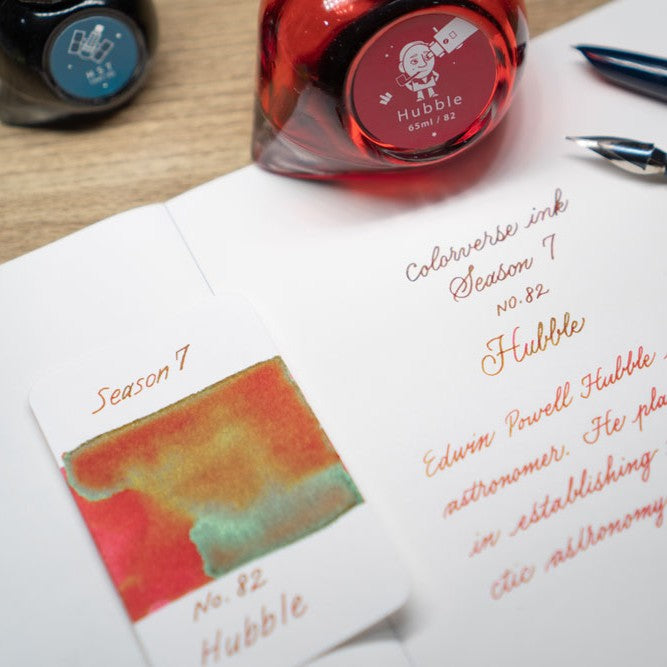 H.S.T
Hubble
65ml / 82
Colorverse ink
Season 7
No. 82
Hubble
Edwin Powell Hubble
astronomer. He pla
in establishing
ctic astronomy
Season 7
No. 82
Hubble